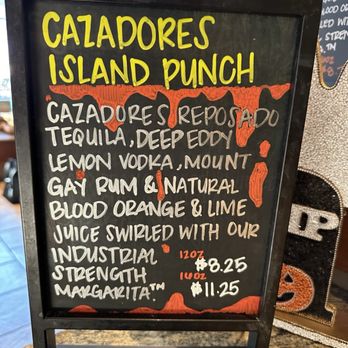 CAZADORES
ISLAND PUNCH
CAZADORES REPOSADO
TEQUILA, DEEP EDDY
LEMON VODKA, MOUNT
GAY RUM & NATURAL
BLOOD ORANGE & LIME
JUICE SWIRLED WITH OUR
INDUSTRIAL 12OZ $8.25
STRENGTH 16OZ
MARGARITA.™ $11.25